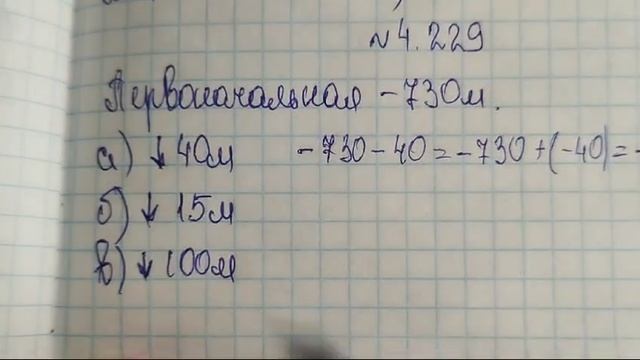 № 4.229
Первоначальная -730м.
а) ↓ 40м -730-40=-730+(-40)=-
б) ↓ 15м
в) ↓ 100м